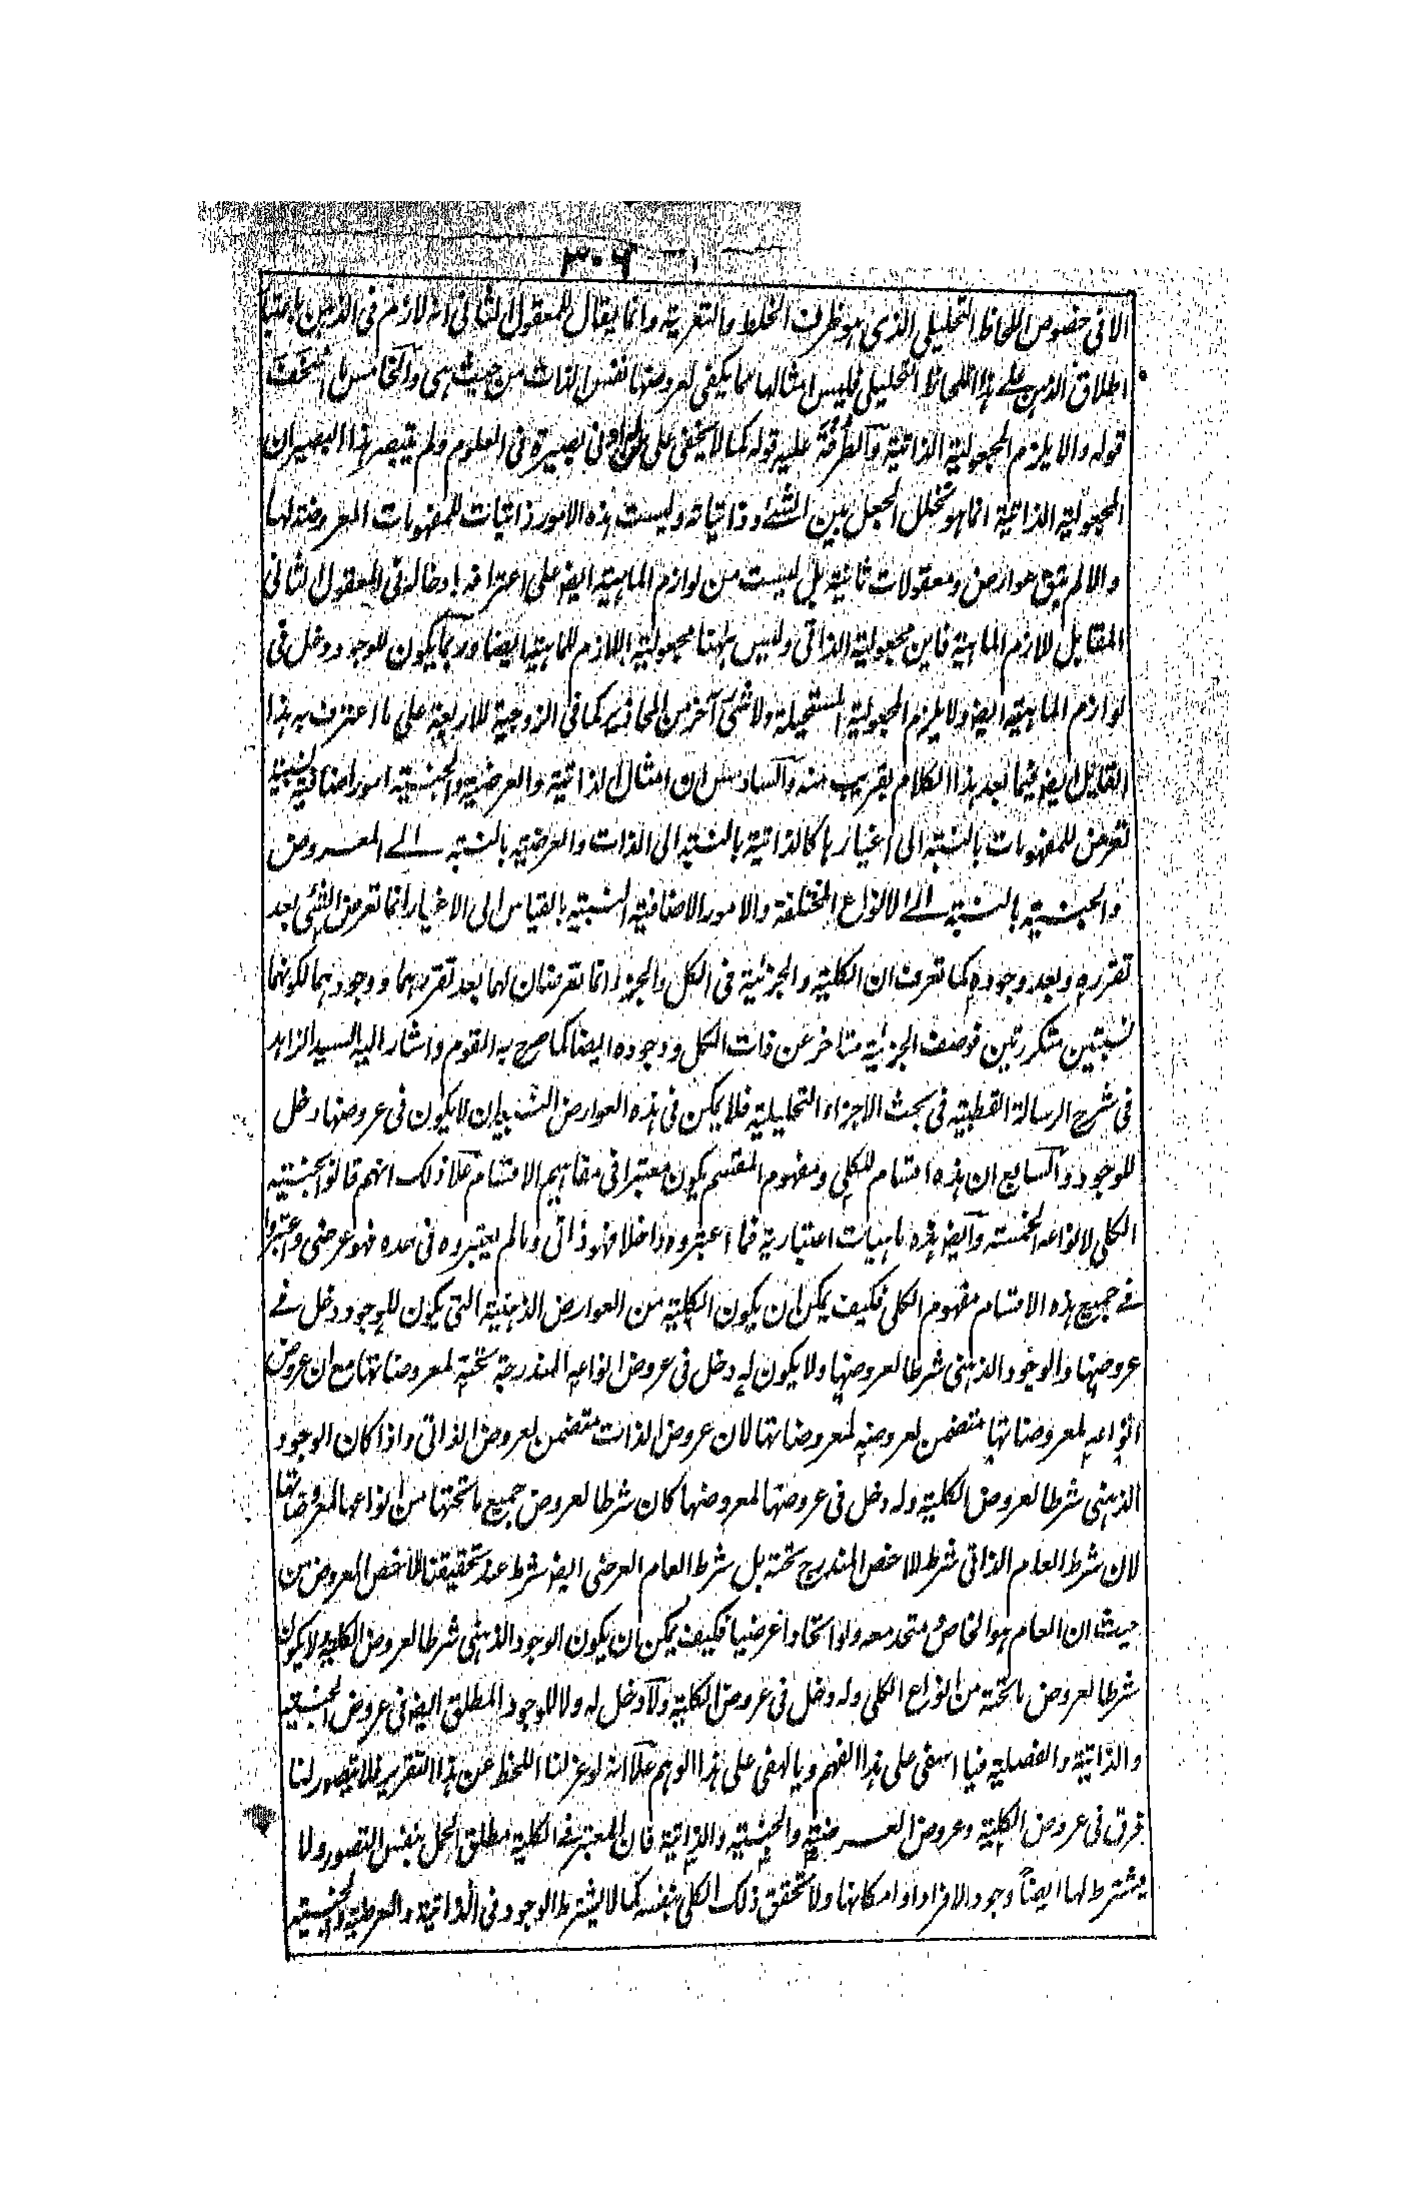 ٣٠٦
الا في خصوص اللحاظ التحليلي الذي هو ظرف الخلط والتعرية وانما يقال للمعقول الثاني انه لازم في الذهن باعتبا
اطلاق الذهن على هذا اللحاظ التحليلي فليس امثالها مما يكفي لعروضها نفس الذات من حيث هي والخامس ما اسخف
قوله والا يلزم المجعولية الذاتية والطرفة عليه قوله كما لا يخفى على من له ادنى بصيرة في العلوم ولم يتبصر هذا البصير ان
المجعولية الذاتية انما هو تخلل الجعل بين الشئ وذاتياته وليست هذه الامور ذاتيات للمفهومات المعروضة لها
والا لم تبق عوارض ومعقولات ثانية بل ليست من لوازم الماهية ايض على اعترافه بادخاله في المعقول الثاني
المقابل للازم الماهية فاين مجعولية الذاتي وليس ههنا مجعولية اللازم للماهية ايضا وربما يكون للوجود دخل في
لوازم الماهية ايض ولا يلزم المجعولية المستحيلة ولا شئ آخر من المحاذير كما في الزوجية للاربعة على ما اعترف به هذا
القايل ايض فيما بعد هذا الكلام بقريب منه والسادس ان امثال الذاتية والعرضية والجنسية امور اضافية نسبية
تعرض للمفهومات بالنسبة الى اغيارها كالذاتية بالنسبة الى الذات والعرضية بالنسبة الے المعروض
والجنسية بالنسبة الے الانواع المختلفة والامور الاضافية النسبية بالقياس الى الاغيار انما تعرض الشئ بعد
تقرره وبعد وجوده كما تعرف ان الكلية والجزئية في الكل والجزء انما تعرضان لهما بعد تقررهما ووجودهما لكونهما
نسبتين متكررتين فوصف الجزئية متاخر عن ذات الكل ووجوده ايضا كما صرح به القوم واشار اليه السيد الزاهد
في شرح الرسالة القطبية في بحث الاجزاء التحليلية فلا يمكن في هذه العوارض النسبية ان لا يكون في عروضها دخل
للوجود والسابع ان هذه اقسام للكلي ومفهوم المقسم يكون معتبرا في مفاهيم الاقسام علا ذلك انهم قالوا بجنسية
الكلي لانواعه الخمسة وايض هذه ماهيات اعتبارية فما اعتبروه داخلا فهو ذاتي وما لم يعتبروه في حده فهو عرضي واعتبروا
في جميع هذه الاقسام مفهوم الكلي فكيف يمكن ان يكون الكلية من العوارض الذهنية التي يكون للوجود دخل في
عروضها والوجود الذهني شرطا لعروضها ولا يكون له دخل في عروض انواعه المندرجة تحته لمعروضاتها مع ان عروض
انواعه لمعروضاتها متضمن لعروضه لمعروضاتها لان عروض الذات متضمن لعروض الذاتي واذا كان الوجود
الذهني شرطا لعروض الكلية وله دخل في عروضها لمعروضها كان شرطا لعروض جميع ما تحتها من انواعها لمعروضاتها
لان شرط العام الذاتي شرط للاخص المندرج تحته بل شرط العام العرضي ايض شرط عند تحقيقنا للاخص المعروض من
حيث ان العام هو الخاص متحد معه ولو اتحادا عرضيا فكيف يمكن ان يكون الوجود الذهني شرطا لعروض الكلية ولا يكون
شرطا لعروض ما تحته من انواع الكلي وله دخل في عروض الكلية ولا دخل له ولا للوجود المطلق ايض في عروض الجنسية
والذاتية والفصلية فيا اسفى على هذا الفهم ويا لهفى على هذا الوهم علا انه لو عزلنا اللحظ عن هذا التقرير فلا يتصور لنا
فرق في عروض الكلية وعروض العرضية والجنسية والذاتية فان المعتبر في الكلية مطلق الحمل بنفس التصور ولا
يشترط لها ايضاً وجود الافراد او امكانها ولا تحقق ذلك الكلي بنفسه كما لا يشترط الوجود في الذاتية والعرضية والجنسية